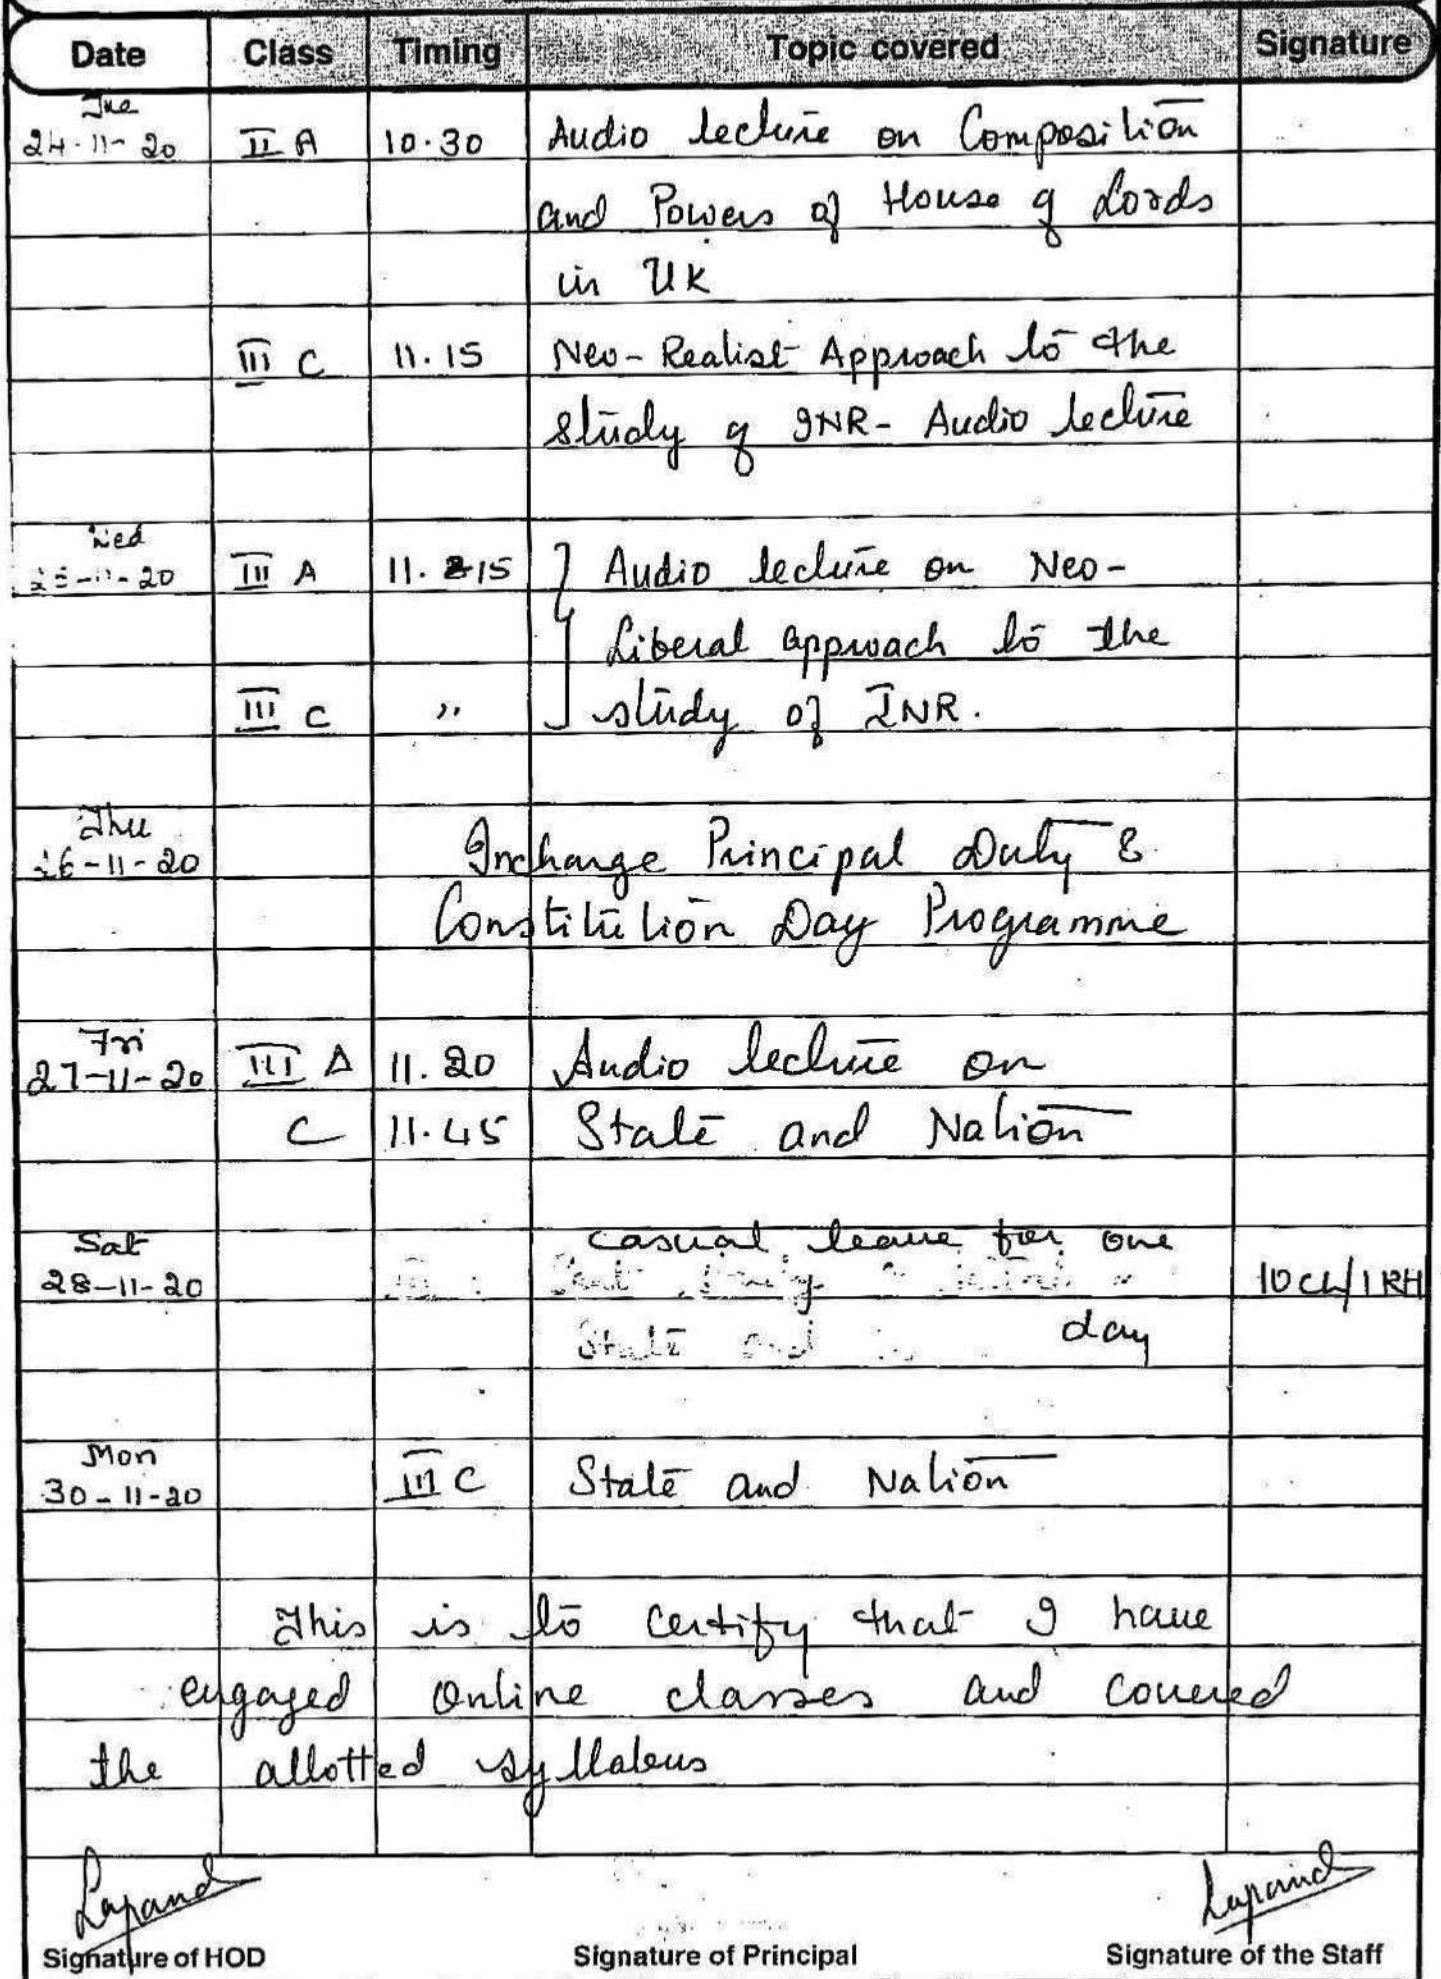 Date Class Timing Topic covered Signature
Tue
24-11-20 II A 10.30 Audio lecture on Composition
and Powers of House of Lords
in UK
III C 11.15 Neo-Realist Approach to the
study of INR- Audio lecture
Wed
25-11-20 III A 11.15 Audio lecture on Neo-
Liberal approach to the
III C ,, study of INR.
Thu
26-11-20 Incharge Principal Duty &
Constitution Day Programme
Fri
27-11-20 III A 11.20 Audio lecture on
C 11.45 State and Nation
Sat casual leave for one
28-11-20 10 CL/1 RH
State and day
Mon
30-11-20 III C State and Nation
This is to certify that I have
engaged online classes and covered
the allotted syllabus
Signature of HOD Signature of Principal Signature of the Staff